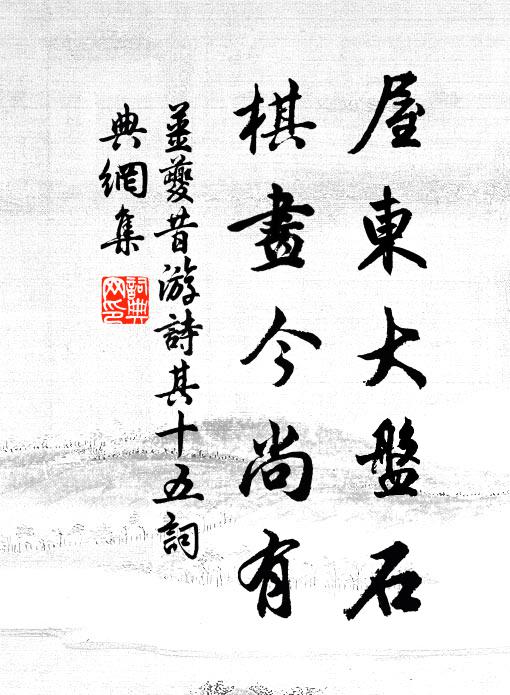 屋東大盤石
棋畫今尚有
姜夔昔游詩其十五詞
典網集
詞典網印